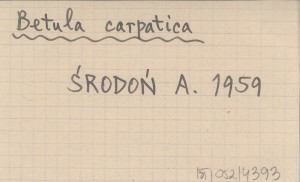 Betula carpatica
ŚRODOŃ A. 1959
052/4393